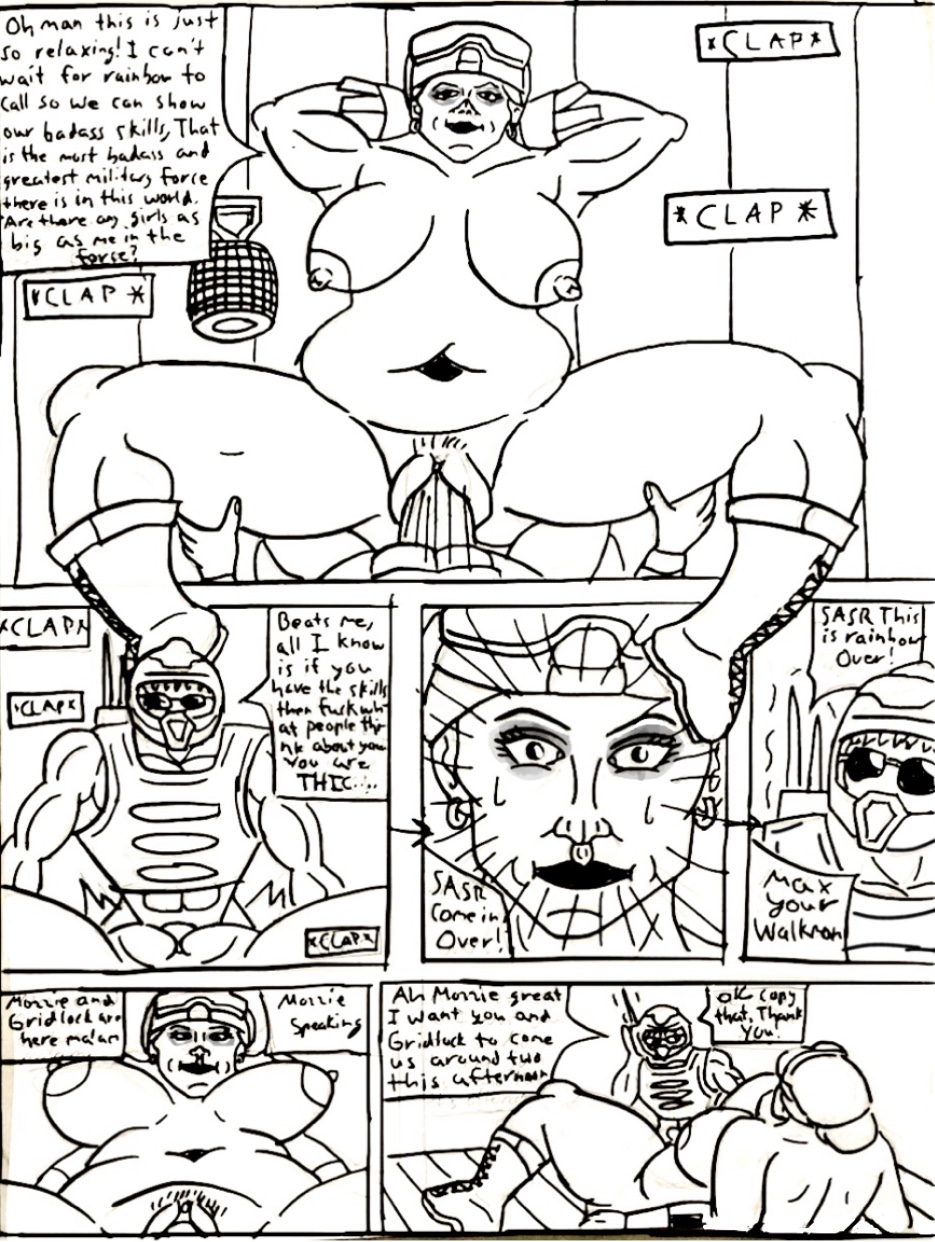 Oh man this is just
so relaxing! I can't
wait for rainbow to
call so we can show
our badass skills, That
is the most badass and
greatest military force
there is in this world.
Are there any girls as
big as me in the
force?
*CLAP*
*CLAP*
*CLAP*
*CLAP*
*CLAP*
Beats me,
all I know
is if you
have the skills
then fuck wh-
at people thi-
nk about you
You are
THIC....
*CLAP*
SASR
Come in
Over!
SASR This
is rainbow
Over!
Max
your
Walkman
Mozzie and
Gridlock are
here ma'am
Mozzie
Speaking
Ah Mozzie great
I want you and
Gridlock to come
us around two
this afternoon
OK copy
that, Thank
You!